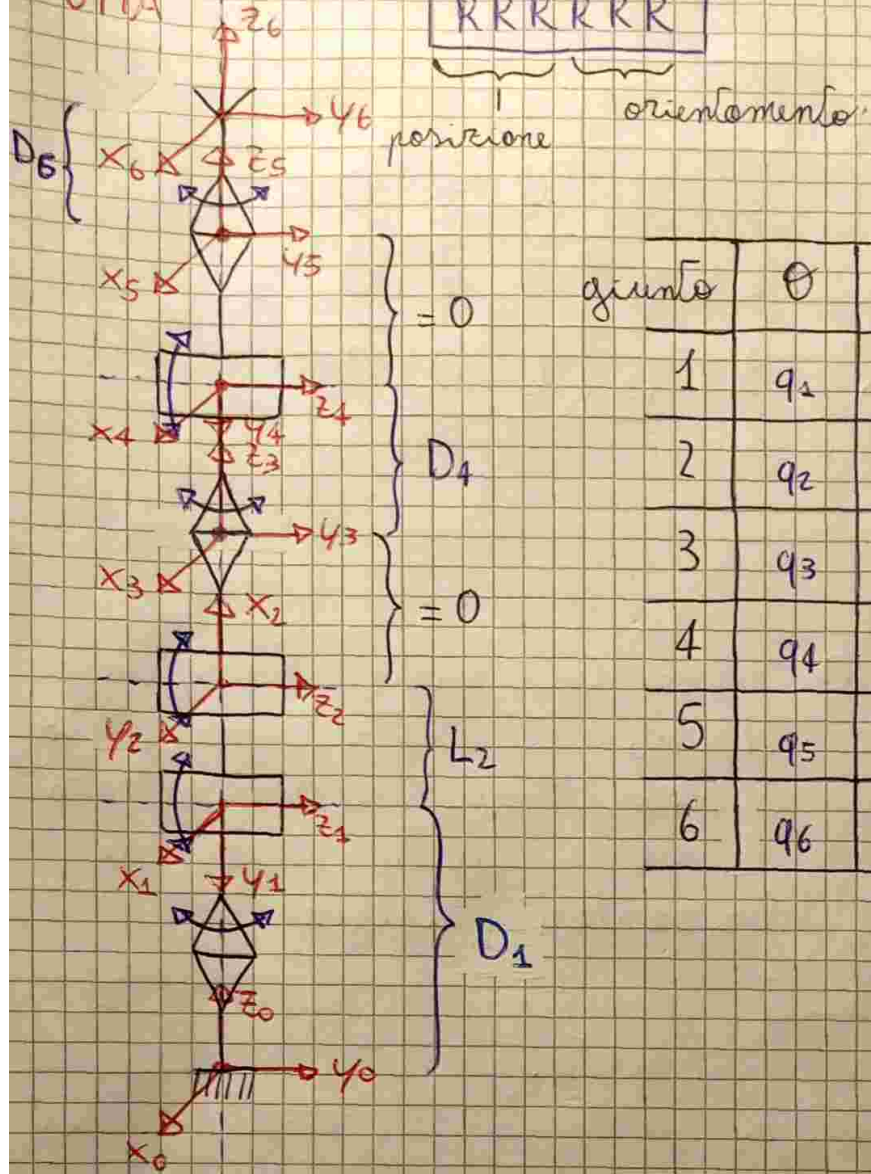 UMA
RRRRRR
posizione
orientamento
z6
y6
x6
D6
z5
y5
x5
= 0
z4
x4
y4
D4
z3
y3
x3
x2
= 0
z2
y2
L2
z1
x1
y1
D1
z0
y0
x0
giunto θ
1 q1
2 q2
3 q3
4 q4
5 q5
6 q6